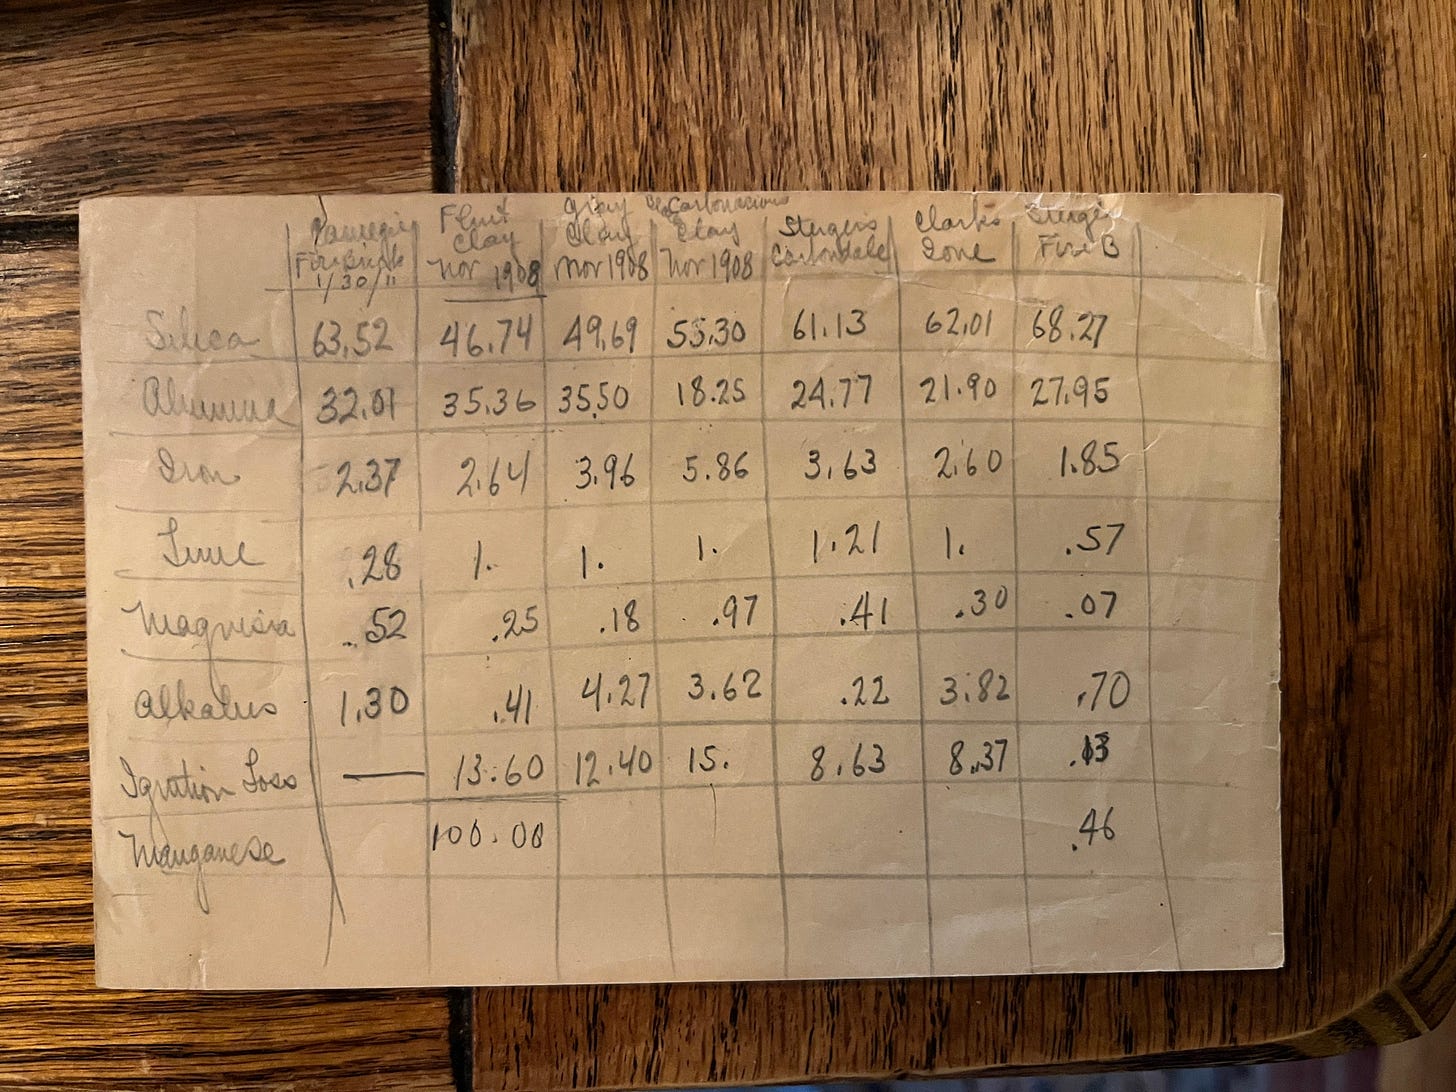 Flint Clay Nor 1908
Gray Clay Nor 1908
Carbonacious Clay Nor 1908
Sturgis Carbondale
Clarks
Sturgis Fire B
1/30/11
Silica 63.52 46.74 49.69 55.30 61.13 62.01 68.27
Alumina 32.01 35.36 35.50 18.25 24.77 21.90 27.95
Iron 2.37 2.64 3.96 5.86 3.63 2.60 1.85
Lime .28 1. 1. 1. 1.21 1. .57
Magnesia .52 .25 .18 .97 .41 .30 .07
Alkalies 1.30 .41 4.27 3.62 .22 3.82 .70
Ignition Loss — 13.60 12.40 15. 8.63 8.37 .13
Manganese 100.00 .46